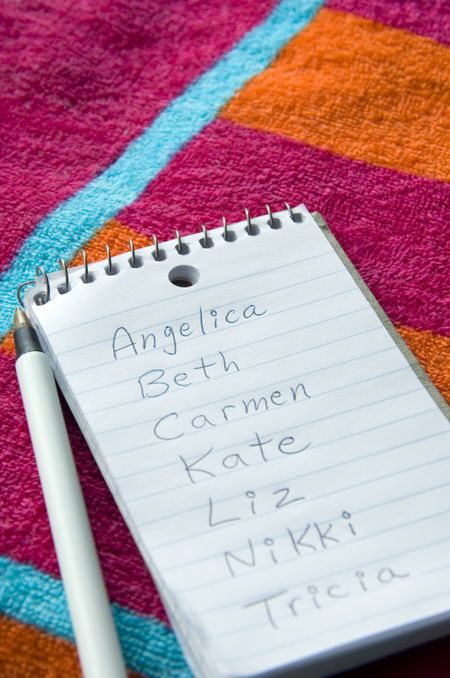 Angelica
Beth
Carmen
Kate
Liz
Nikki
Tricia